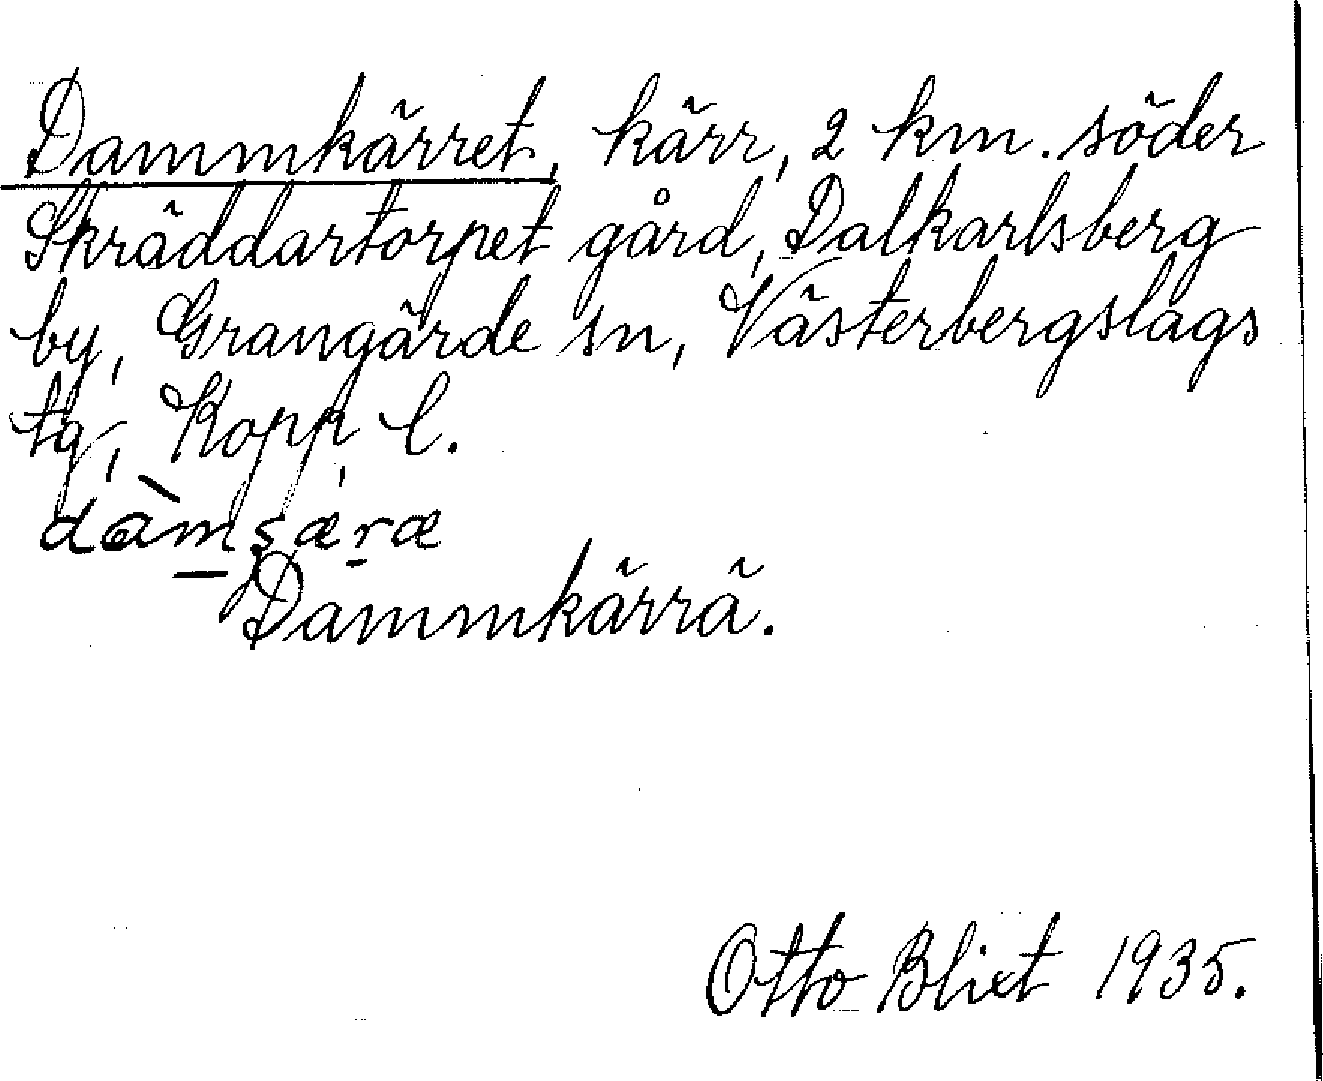 Dammkärret, kärr, 2 km. söder
Skräddartorpet gård, Dalkarlsberg
by, Grangärde sn, Västerbergslags
tg, Kopp, l.
dàmʂæræ
Dammkärrä.
Otto Blixt 1935.